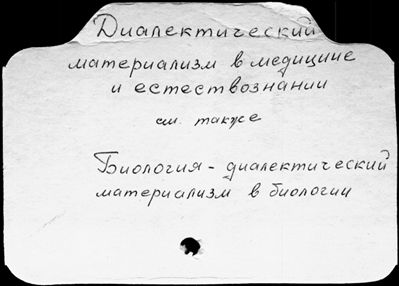 Диалектический
материализм в медицине
и естествознании
см. также
Биология - диалектический
материализм в биологии